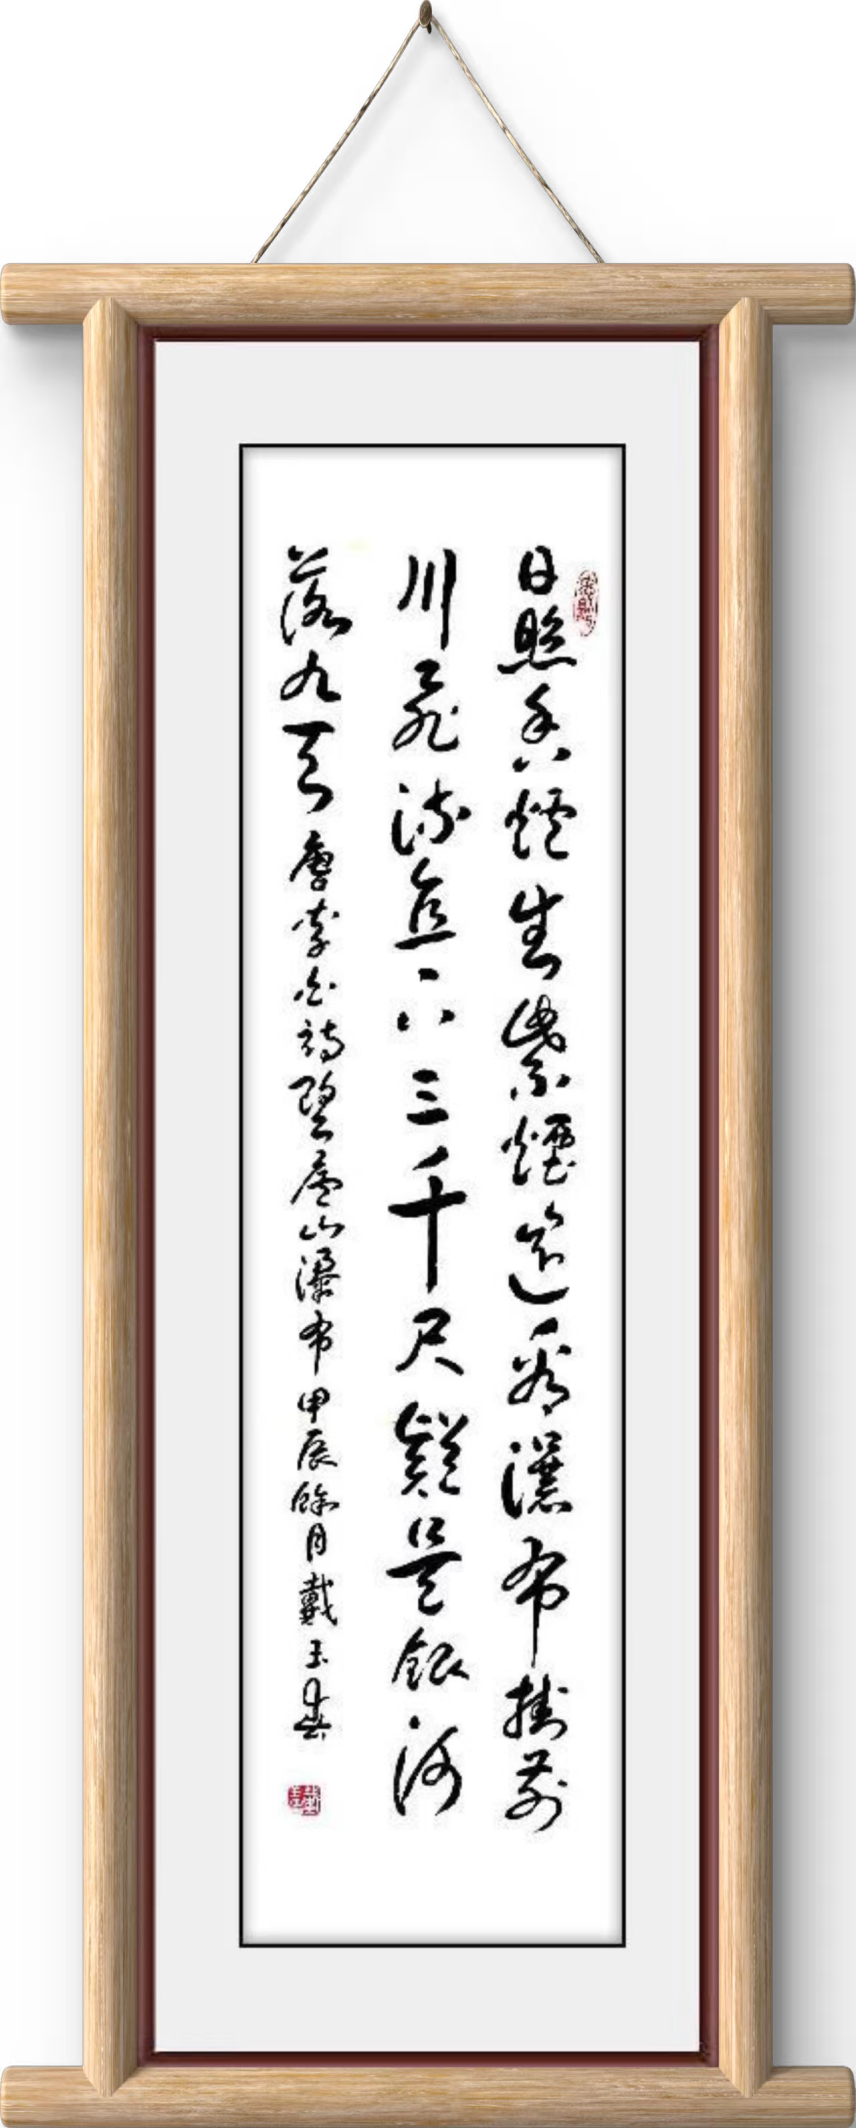 日照香炉生紫烟遥看瀑布挂前
川飞流直下三千尺疑是银河
落九天 唐李白诗望庐山瀑布 甲辰馀月戴玉春